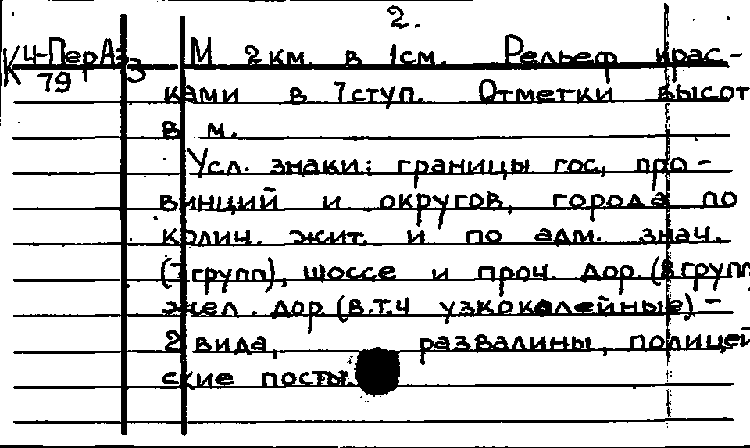 2.
К 4-ПерАз 3 М 2 км. в 1см. Рельеф крас-
79
ками в 7 ступ. Отметки высот
в м.
Усл. знаки: границы гос., про-
винций и округов, города по
колич. жит. и по адм. знач.
(7групп), шоссе и проч. дор. (8групп)
жел. дор. (в.т.ч узкоколейные) -
2 вида, развалины, полицей
ские посты.